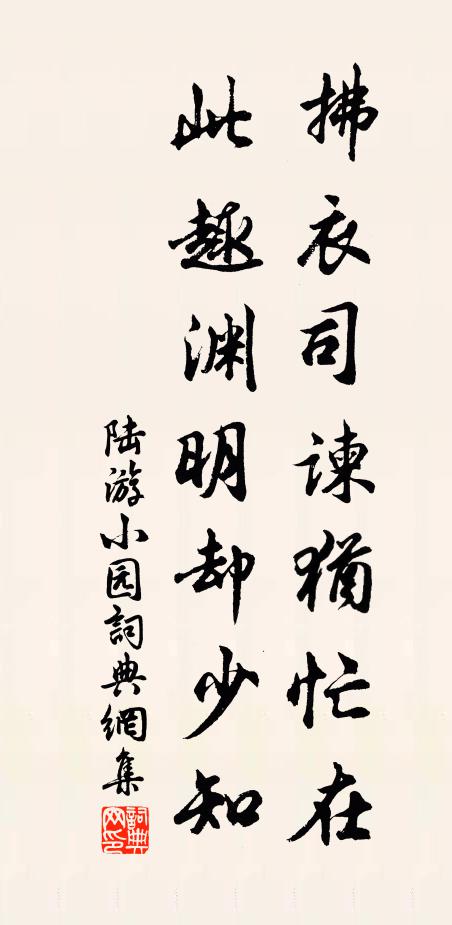 拂衣司谏猶忙在
此趣渊明却少知
陆游小园詞典網集
詞典网印